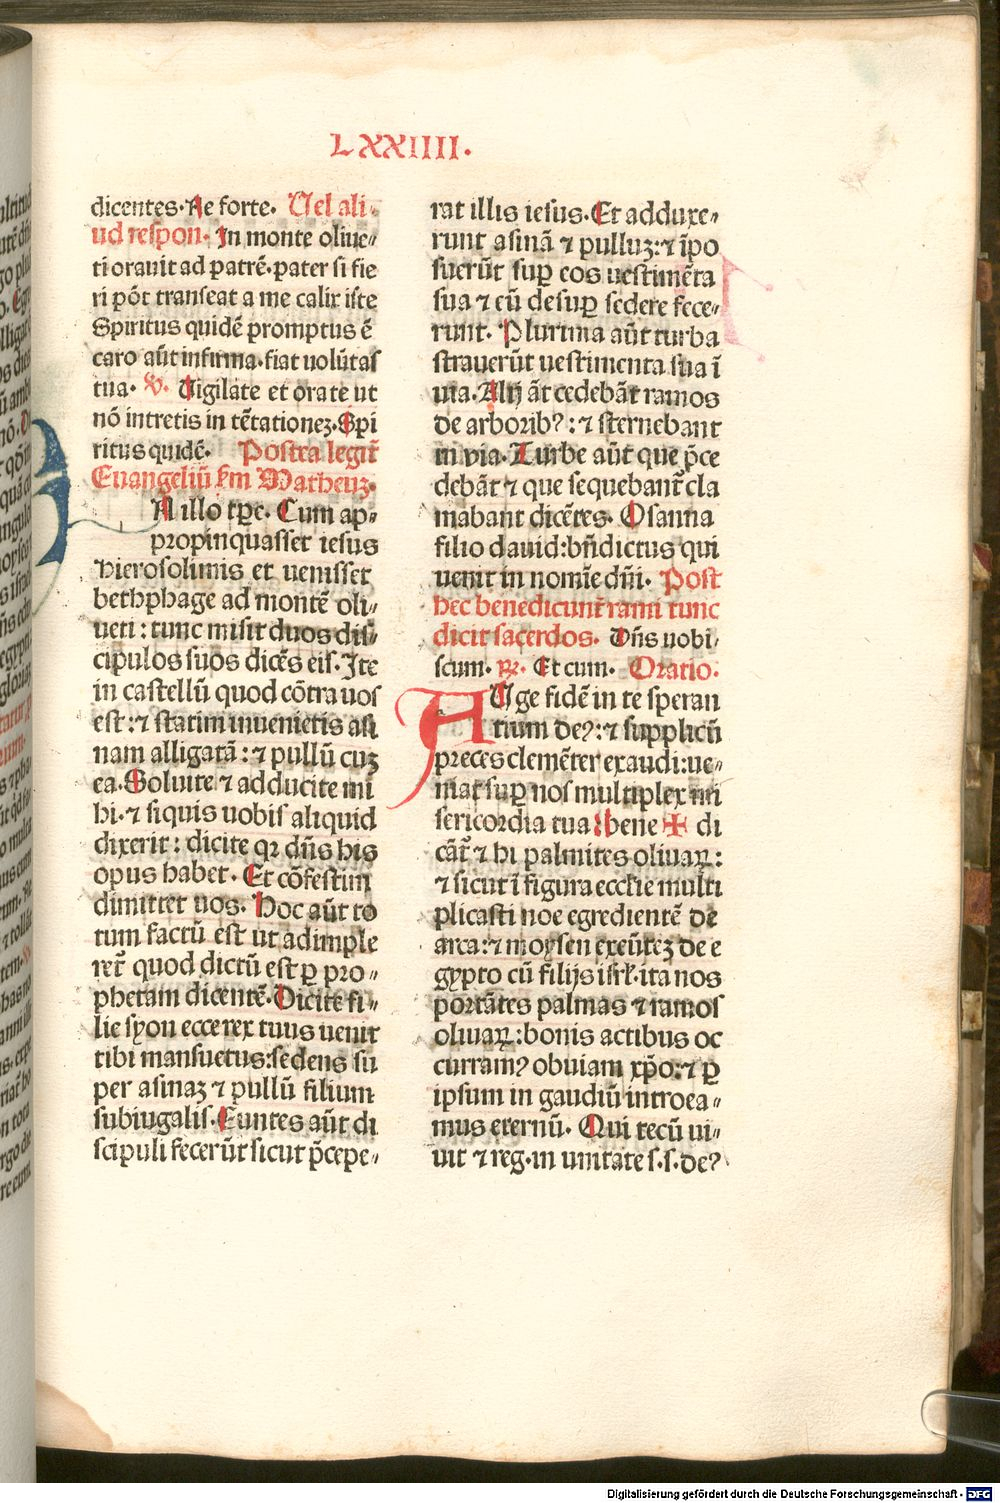 LXXIIII.
dicentes. Ne forte. Vel ali-
ud respon. In monte oliue-
ti orauit ad patrē. pater si fie
ri pōt transeat a me calix iste
Spiritus quidē promptus ē
caro aūt infirma. fiat uolūtas
tua. V. Vigilate et orate ut
nō intretis in tētationez. Spi
ritus quidē. Postea legit᷑
Euangeliū km Matheuz.
N illo tpe. Cum ap-
propinquasset iesus
hierosolimis et uenisset
bethphage ad montē oli-
ueti: tunc misit duos dis-
cipulos suos dicēs eis. Ite
in castellū quod cōtra uos
est: ⁊ statim inuenietis asi
nam alligatā: ⁊ pullū cuz
ea. Soluite ⁊ adducite mi
hi. ⁊ siquis uobis aliquid
dixerit: dicite qꝛ dn̄s his
opus habet. Et cōfestim
dimittet uos. Hoc aūt to
tum factū est ut adimple
ret᷑ quod dictū est ꝑ pro-
phetam dicentē. Dicite fi-
lie syon ecce rex tuus uenit
tibi mansuetus: sedens su
per asinaz ⁊ pullū filium
subiugalis. Euntes aūt di
scipuli fecerūt sicut p̄cepe-
rat illis iesus. Et adduxe-
runt asinā ⁊ pulluz: ⁊ īpo
suerūt suꝑ eos uestimēta
sua ⁊ eū desuꝑ sedere fece-
runt. Plurima aūt turba
strauerūt uestimenta sua ī
uia. Alij āt cedebāt ramos
de arborib?: ⁊ sternebant
in via. Turbe aūt que p̄ce
debāt ⁊ que sequebant᷑ cla
mabant dicētes. Osanna
filio dauid: bn̄dictus qui
uenit in nomīe dn̄i. Post
hec benedicunt᷑ rami tunc
dicit sacerdos. Dn̄s uobi-
scum. ꝶ. Et cum. Oratio.
AUge fidē in te speran
tium de?: ⁊ supplicū
preces clemēter exaudi: ue-
niat suꝑ nos multiplex mi
sericordia tua: bene ✠ di
cāt᷑ ⁊ hi palmites oliuaꝝ:
⁊ sicut ī figura ecclie multi
plicasti noe egredientē de
arca: ⁊ moysen exeūtez de e
gypto cū filijs isrl. ita nos
portātes palmas ⁊ ramos
oliuaꝝ: bonis actibus oc
curram? obuiam xp̄o: ⁊ ꝑ
ipsum in gaudiū introea-
mus eternū. Qui tecū ui-
uit ⁊ reg. in unitate s. s. de?
Digitalisierung gefördert durch die Deutsche Forschungsgemeinschaft - DFG